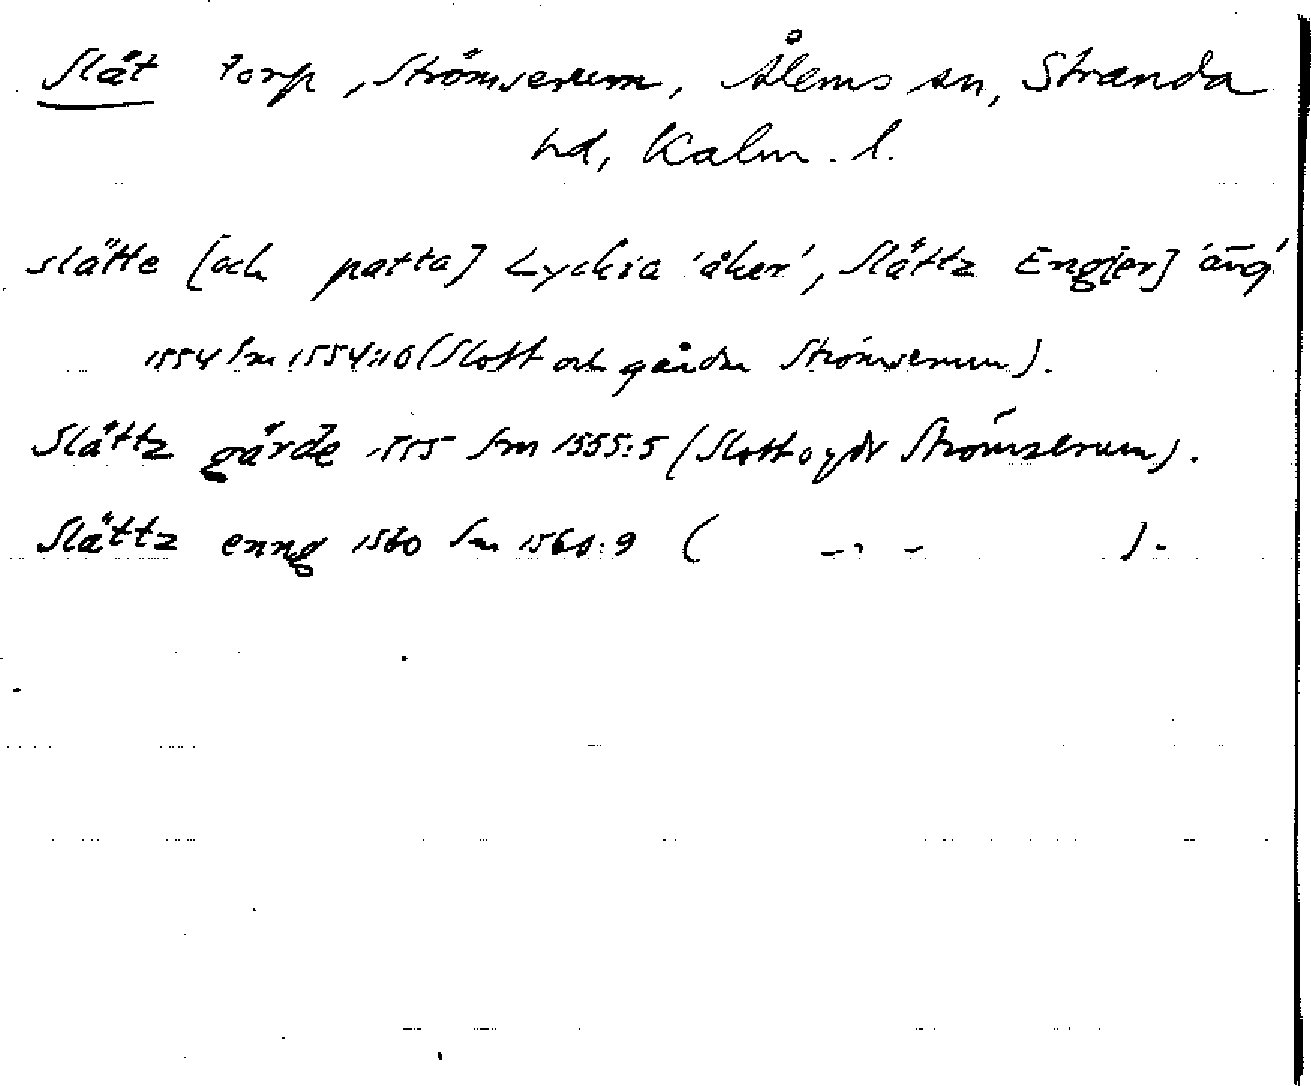 Slät torp, Strömserum, Ålems sn, Stranda
hd, Kalm. l.
slätte [och patta] Lyckia 'åker', Slättz Eng[er] 'äng'
1554 Sm 1554:10 (Slott och gårdar Strömserum).
Slättz gärde 1555 Sm 1555:5 (Slott o gdr Strömserum).
Slättz enng 1560 Sm 1560:9 ( –"– ).